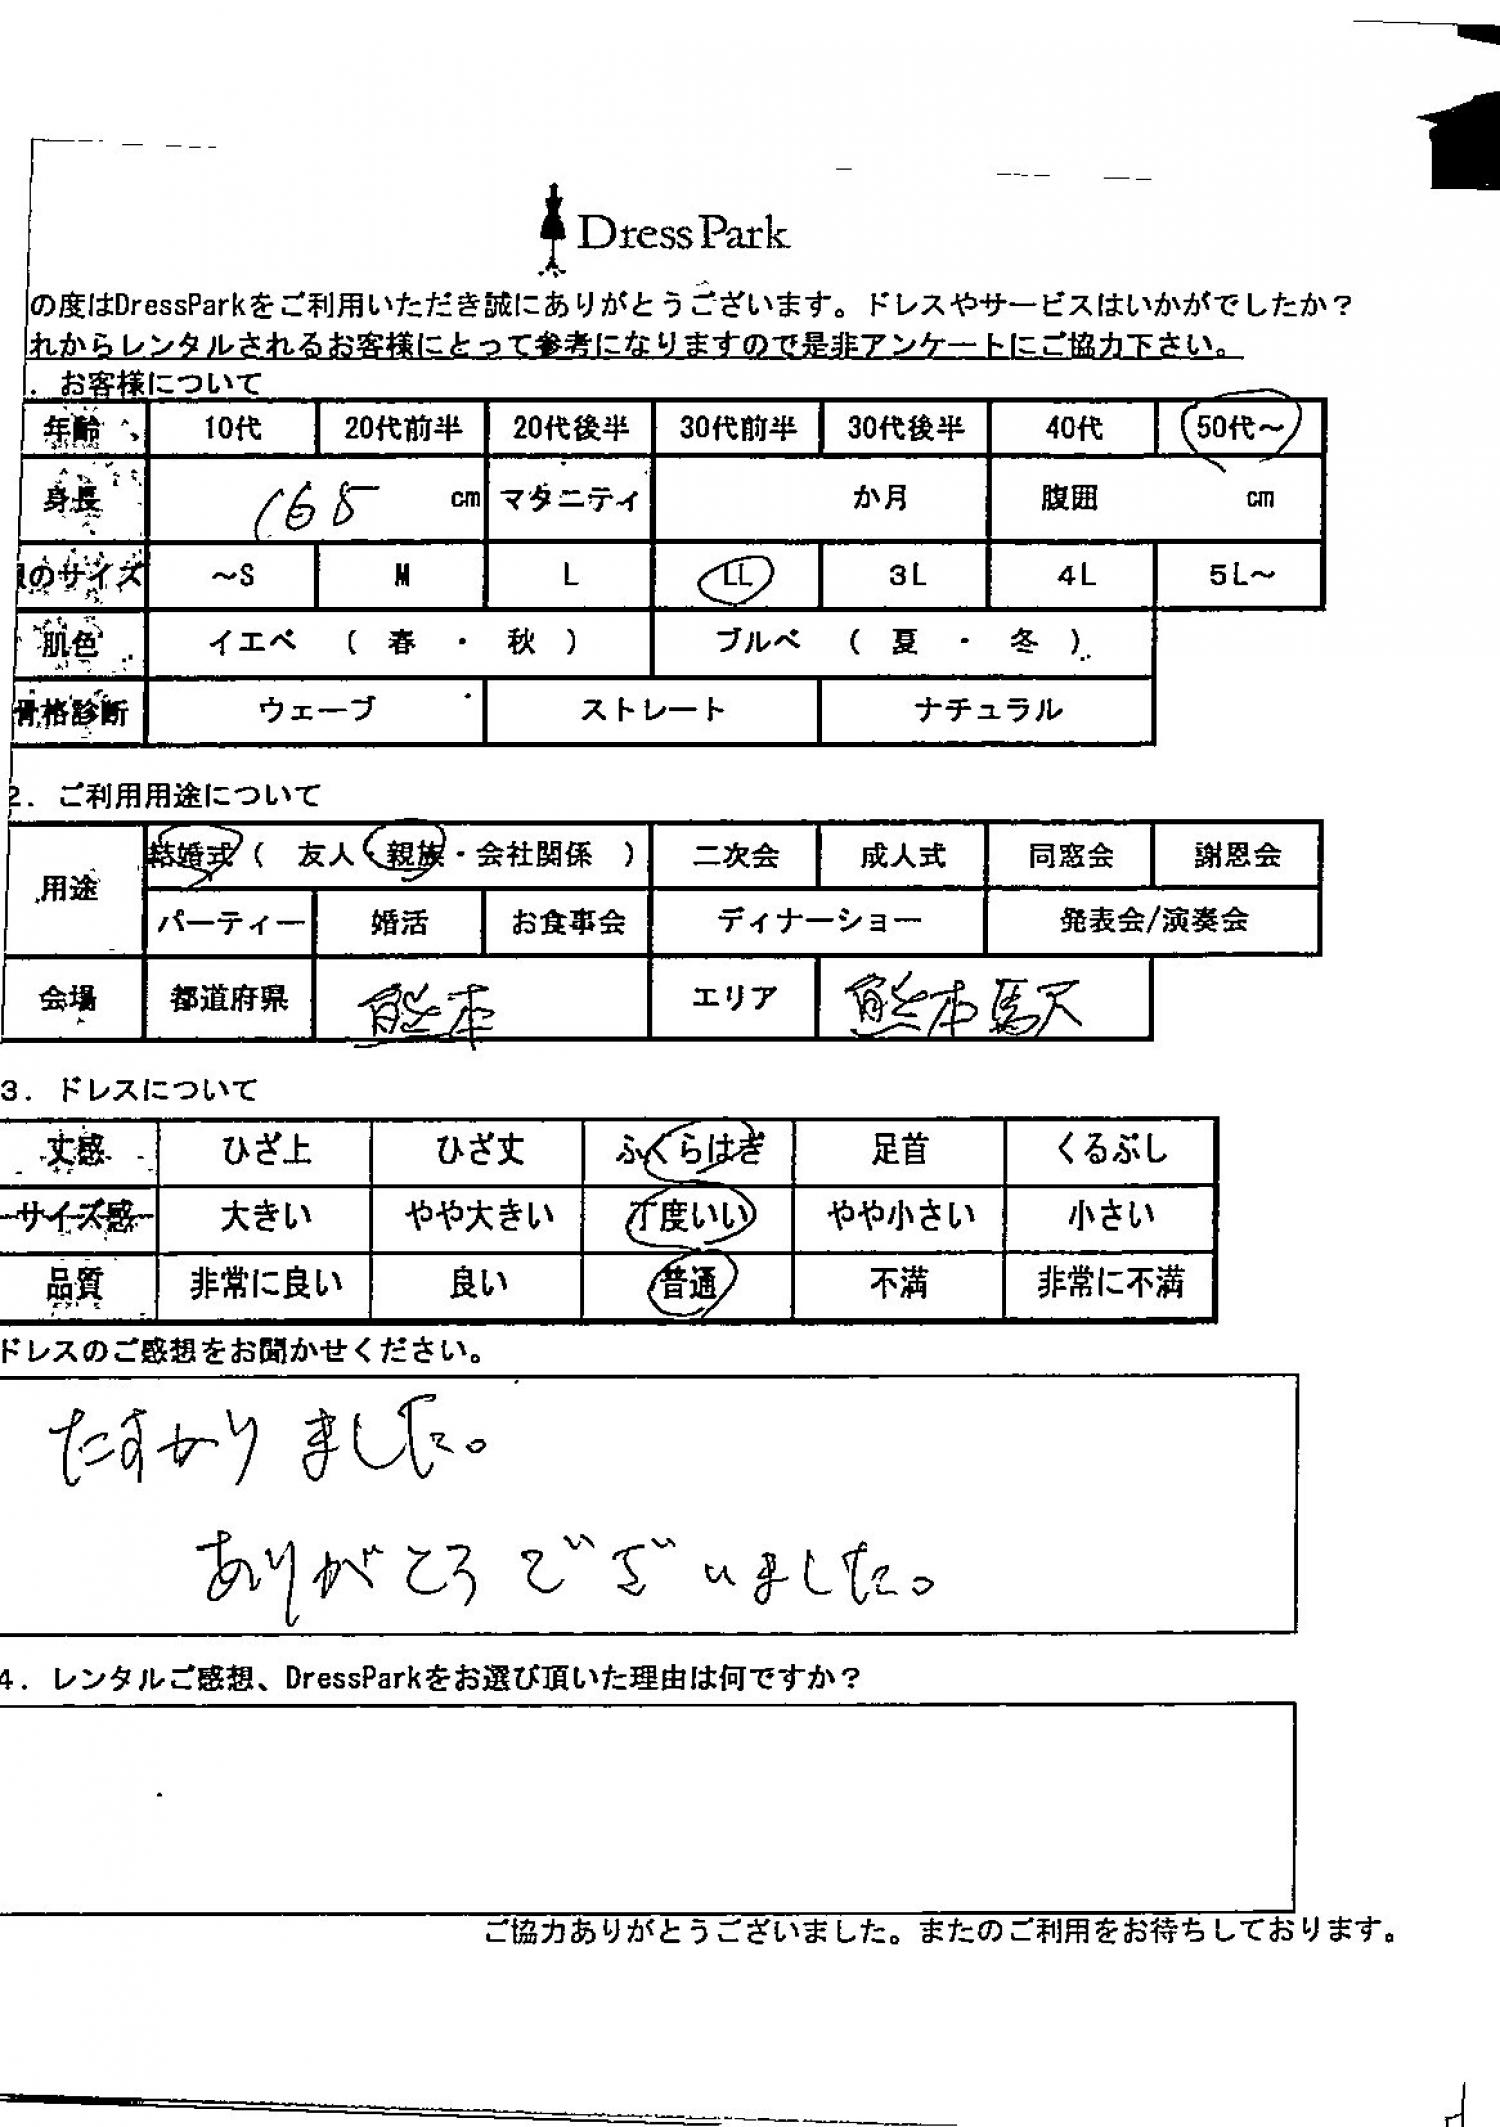 Dress Park
の度はDressParkをご利用いただき誠にありがとうございます。ドレスやサービスはいかがでしたか？
れからレンタルされるお客様にとって参考になりますので是非アンケートにご協力下さい。
．お客様について
年齢 10代 20代前半 20代後半 30代前半 30代後半 40代 50代～
身長 168 cm マタニティ か月 腹囲 cm
のサイズ ～S M L LL 3L 4L 5L～
肌色 イエベ （ 春 ・ 秋 ） ブルベ （ 夏 ・ 冬 ）
骨格診断 ウェーブ ストレート ナチュラル
2．ご利用用途について
用途 結婚式（ 友人・親族・会社関係 ） 二次会 成人式 同窓会 謝恩会
パーティー 婚活 お食事会 ディナーショー 発表会/演奏会
会場 都道府県 熊本 エリア 熊本駅
3．ドレスについて
丈感 ひざ上 ひざ丈 ふくらはぎ 足首 くるぶし
サイズ感 大きい やや大きい 丁度いい やや小さい 小さい
品質 非常に良い 良い 普通 不満 非常に不満
ドレスのご感想をお聞かせください。
たすかりました。
ありがとうございました。
4．レンタルご感想、DressParkをお選び頂いた理由は何ですか？
ご協力ありがとうございました。またのご利用をお待ちしております。